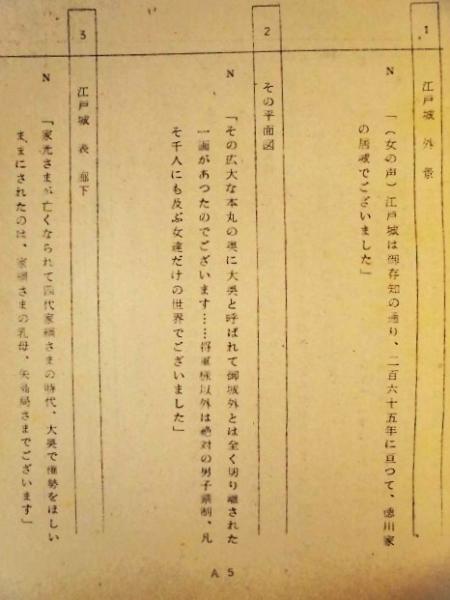 1
江戸城 外景
N 「(女の声)江戸城は御存知の通り、二百六十五年に亘つて、徳川家
の居城でございました」
2
その平面図
N 「その広大な本丸の奥に大奥と呼ばれて御城外とは全く切り離された
一画があつたのでございます……将軍様以外は絶対の男子禁制、凡
そ千人にも及ぶ女達だけの世界でございました」
3
江戸城 表 廊下
N 「家光さまが亡くなられて四代家綱さまの時代、大奥で権勢をほしい
まゝにされたのは、家綱さまの乳母、矢島局さまでございます」
A 5